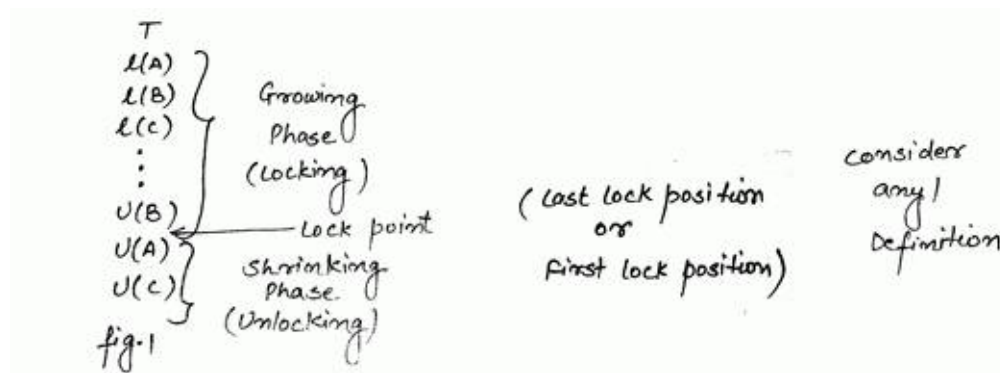 T
l(A)
l(B)
l(C)
⋮
U(B)
U(A)
U(C)
fig.1
Growing
Phase
(Locking)
Lock point
Shrinking
Phase
(Unlocking)
(Last lock position
or
First lock position)
consider
any 1
Definition